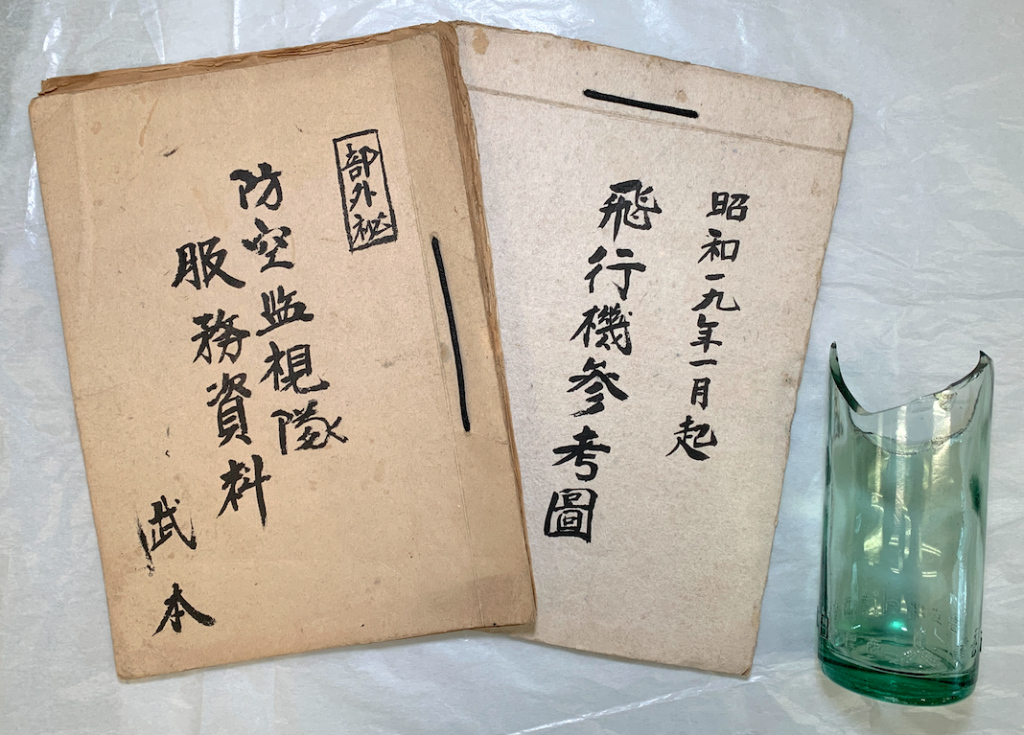 部外秘
防空监視隊
服務資料
武本
昭和一九年一月起
飛行機参考圖